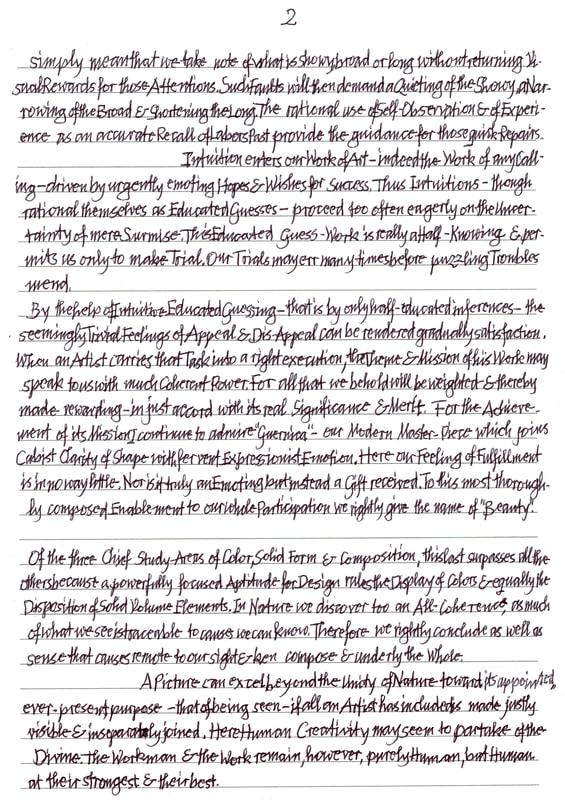 2
simply mean that we take note of what is showy broad or long without returning Vi-
sual Rewards for those Attentions. Such Faults will then demand a Quieting of the Showy, a Nar-
rowing of the Broad & Shortening the Long. The rational use of Self-Observation & of Experi-
ence as an accurate Recall of Labors Past provide the guidance for those quick Repairs.
Intuition enters our Work of Art - indeed the Work of any Call-
ing - driven by urgently emoting Hopes & Wishes for Success. Thus Intuitions - though
rational themselves as Educated Guesses - proceed too often eagerly on the Uncer-
tainty of mere Surmise. This Educated Guess-Work is really a Half-Knowing & per-
mits us only to make Trial. Our Trials may err many times before puzzling Troubles
mend.
By the help of Intuitive Educated Guessing - that is by only half-educated inferences - the
seemingly Trivial Feelings of Appeal & Dis-Appeal can be rendered gradually satisfaction.
When an Artist carries that Task into a right execution, the Theme & Mission of his Work may
speak to us with much Coherent Power. For all that we behold will be weighted & thereby
made rewarding - in just accord with its real Significance & Merit. For the Achieve-
ment of its Mission I continue to admire "Guernica" - our Modern Master-Piece which joins
Cubist Clarity of Shape with fervent Expressionist Emotion. Here our Feeling of Fulfillment
is in no way little. Nor is it truly an Emoting but instead a Gift received. To this most thorough-
ly composed Enablement to our whole Participation we rightly give the name of "Beauty".
Of the three Chief Study-Areas of Color, Solid Form & Composition, this last surpasses all the
others because a powerfully focused Aptitude for Design rules the Display of Colors & equally the
Disposition of Solid Volume Elements. In Nature we discover too an All-Coherence, as much
of what we see is traceable to causes we can know. Therefore we rightly conclude as well as
sense that causes remote to our sight & ken compose & underly the Whole.
A Picture can excel beyond the Unity of Nature toward its appointed,
ever-present purpose - that of being seen - if all an Artist has included is made justly
visible & inseparately joined. Here Human Creativity may seem to partake of the
Divine. The Workman & the Work remain, however, purely Human, but Human
at their strongest & their best.